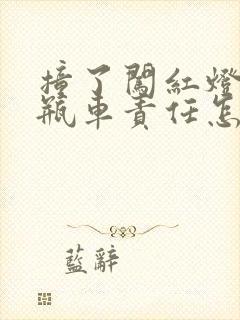 撞了闖紅燈
瓶車責任怎
藍辭